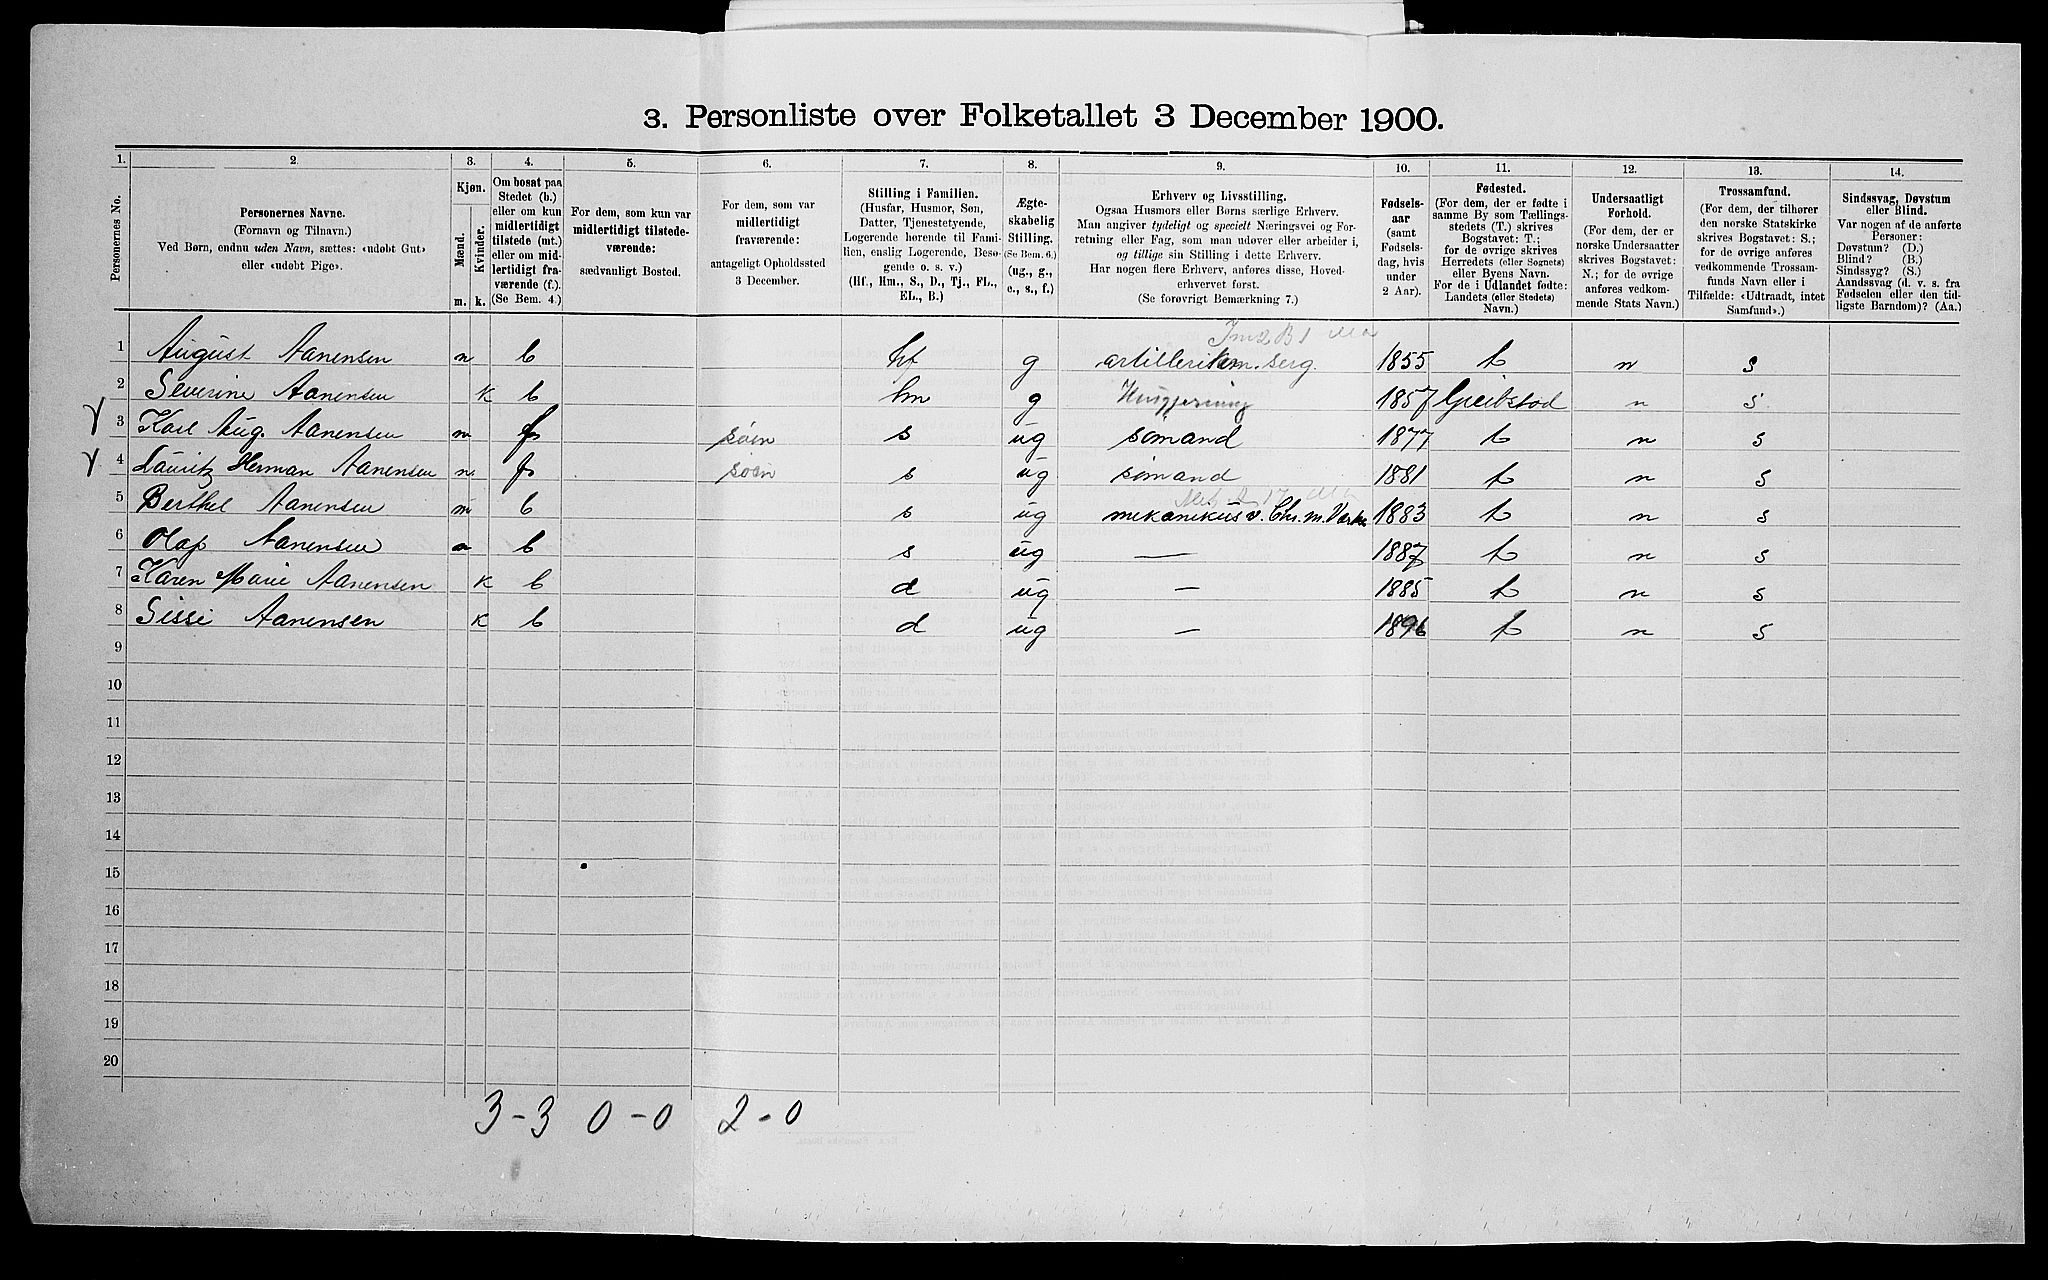 3. Personliste over Folketallet 3 December 1900.
1. 2. 3. 4. 5. 6. 7. 8. 9. 10. 11. 12. 13. 14.
Personernes No.
Personernes Navne.
(Fornavn og Tilnavn.)
Ved Børn, endnu uden Navn, sættes: «udøbt Gut»
eller «udøbt Pige».
Kjøn.
Mænd.
Kvinder.
m. k.
Om bosat paa
Stedet (b.)
eller om kun
midlertidigt
tilstede (mt.)
eller om mid-
lertidigt fra-
værende (f.).
(Se Bem. 4.)
For dem, som kun var
midlertidigt tilstede-
værende:
sædvanligt Bosted.
For dem, som var
midlertidigt
fraværende:
antageligt Opholdssted
3 December.
Stilling i Familien.
(Husfar, Husmor, Søn,
Datter, Tjenestetyende,
Logerende hørende til Fami-
lien, enslig Logerende, Besø-
gende o. s. v.)
(Hf., Hm., S., D., Tj., FL.,
EL., B.)
Ægte-
skabelig
Stilling.
(Se Bem. 6.)
(ug., g.,
e., s., f.)
Erhverv og Livsstilling.
Ogsaa Husmors eller Børns særlige Erhverv.
Man angiver tydeligt og specielt Næringsvei og For-
retning eller Fag, som man udøver eller arbeider i,
og tillige sin Stilling i dette Erhverv.
Har nogen flere Erhverv, anføres disse, Hoved-
erhvervet først.
(Se forøvrigt Bemærkning 7.)
Fødsels-
aar
(samt
Fødsels-
dag, hvis
under
2 Aar).
Fødested.
(For dem, der er fødte i
samme By som Tællings-
stedets (T.) skrives
Bogstavet: T.;
for de øvrige skrives
Herredets (eller Sognets)
eller Byens Navn.
For de i Udlandet fødte:
Landets (eller Stedets)
Navn.)
Undersaatligt
Forhold.
(For dem, der er
norske Undersaatter
skrives Bogstavet:
N.; for de øvrige
anføres vedkom-
mende Stats Navn.)
Trossamfund.
(For dem, der tilhører
den norske Statskirke
skrives Bogstavet: S.;
for de øvrige anføres
vedkommende Trossam-
funds Navn eller i
Tilfælde: «Udtraadt, intet
Samfund».)
Sindssvag, Døvstum
eller Blind.
Var nogen af de anførte
Personer:
Døvstum? (D.)
Blind? (B.)
Sindssyg? (S.)
Aandssvag (d. v. s. fra
Fødselen eller den tid-
ligste Barndom)? (Aa.)
1 August Aanensen m b hf g artilleri serg. 1855 t n s
2 Severine Aanensen k b hm g Husgjerning 1857 n s
3 Karl Aug. Aanensen m f søen s ug sømand 1877 t n s
4 Lauritz Herman Aanensen m f søen s ug sømand 1881 t n s
5 Berthel Aanensen m b s ug mekanikus v. Chr. m. Værks 1883 t n s
6 Olaf Aanensen m b s ug — 1887 t n s
7 Karen Marie Aanensen k b d ug — 1885 t n s
8 Sissi Aanensen k b d ug — 1896 t n s
9
10
11
12
13
14
15
16
17
18
19
20
3-3 0-0 2-0